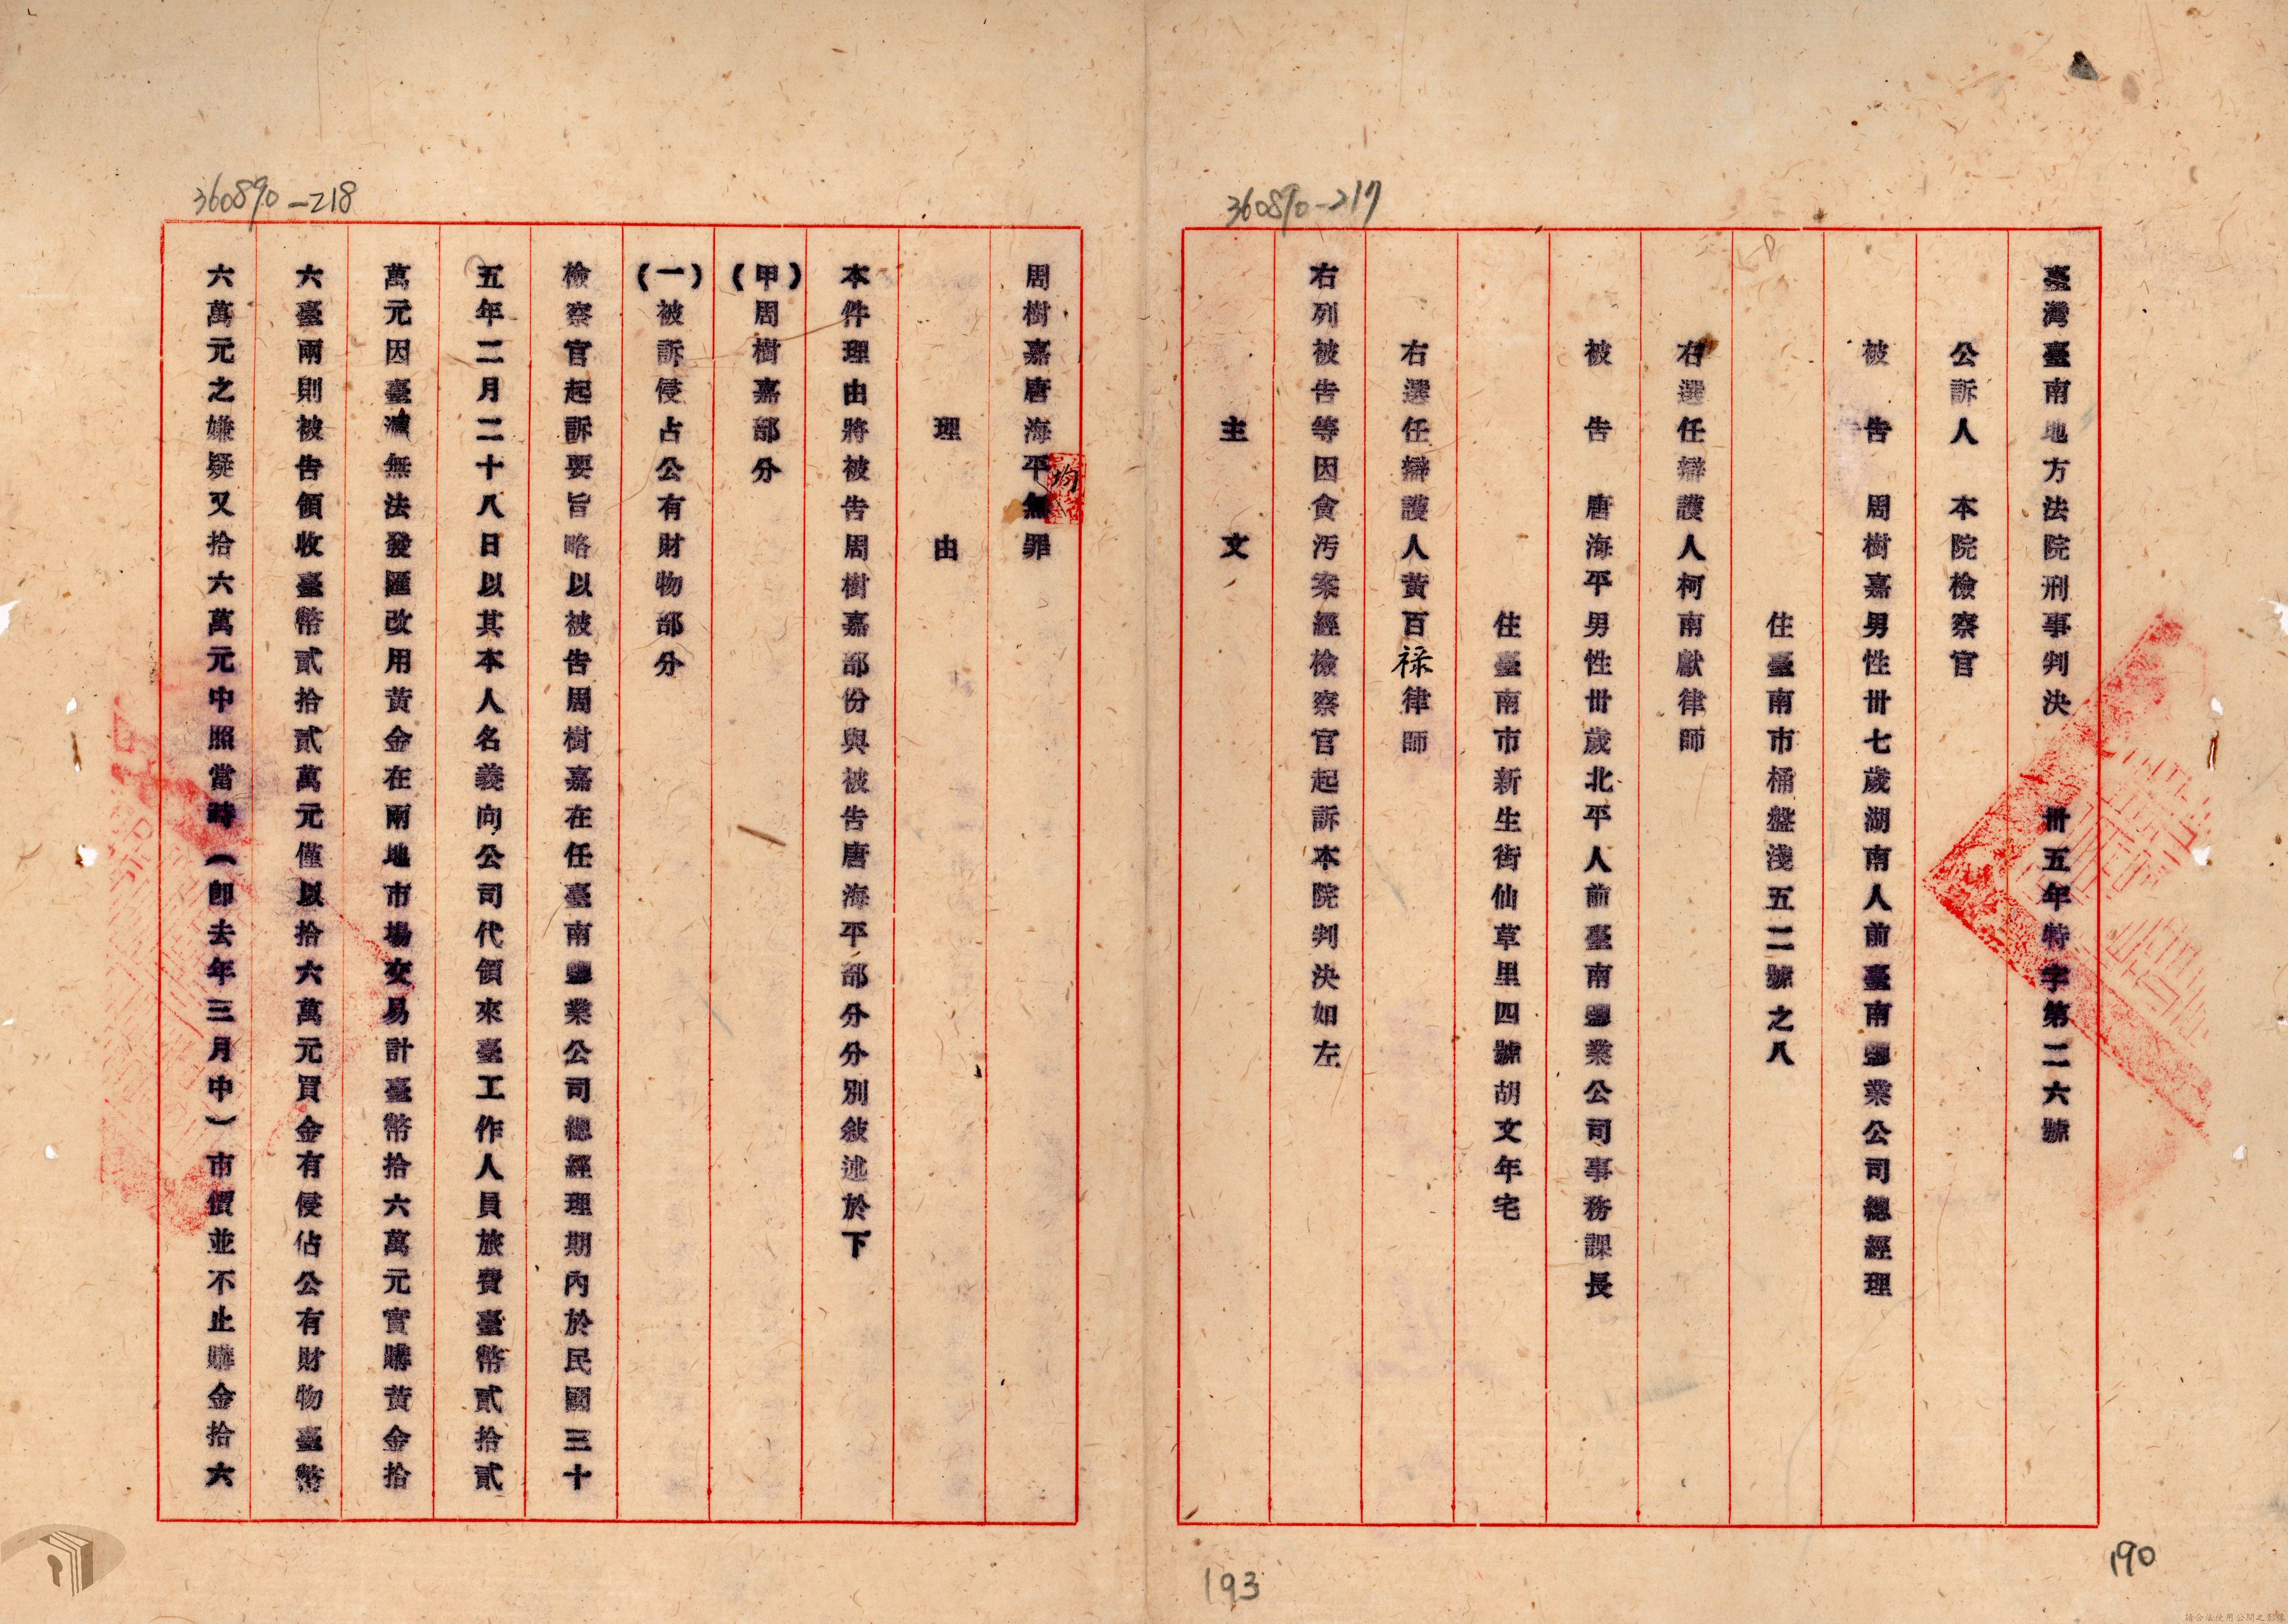 360890-217
臺灣臺南地方法院刑事判決 卅五年特字第二六號
公訴人 本院檢察官
被 告 周樹嘉男性卅七歲湖南人前臺南鹽業公司總經理
住臺南市桶盤淺五二號之八
右選任辯護人柯南獻律師
被 告 唐海平男性卅歲北平人前臺南鹽業公司事務課長
住臺南市新生街仙草里四號胡文年宅
右選任辯護人黃百祿律師
右列被告等因貪污案經檢察官起訴本院判決如左
主 文
190
193
360890-218
周樹嘉唐海平均無罪
理 由
本件理由將被告周樹嘉部份與被告唐海平部分分別敍述於下
(甲)周樹嘉部分
(一)被訴侵占公有財物部分
檢察官起訴要旨略以被告周樹嘉在任臺南鹽業公司總經理期內於民國三十
五年二月二十八日以其本人名義向公司代領來臺工作人員旅費臺幣貳拾貳
萬元因臺滬無法發匯改用黃金在兩地市場交易計臺幣拾六萬元實購黃金拾
六臺兩則被告領收臺幣貳拾貳萬元僅以拾六萬元買金有侵佔公有財物臺幣
六萬元之嫌疑又拾六萬元中照當時(即去年三月中)市價並不止購金拾六
請合法使用公開之影像